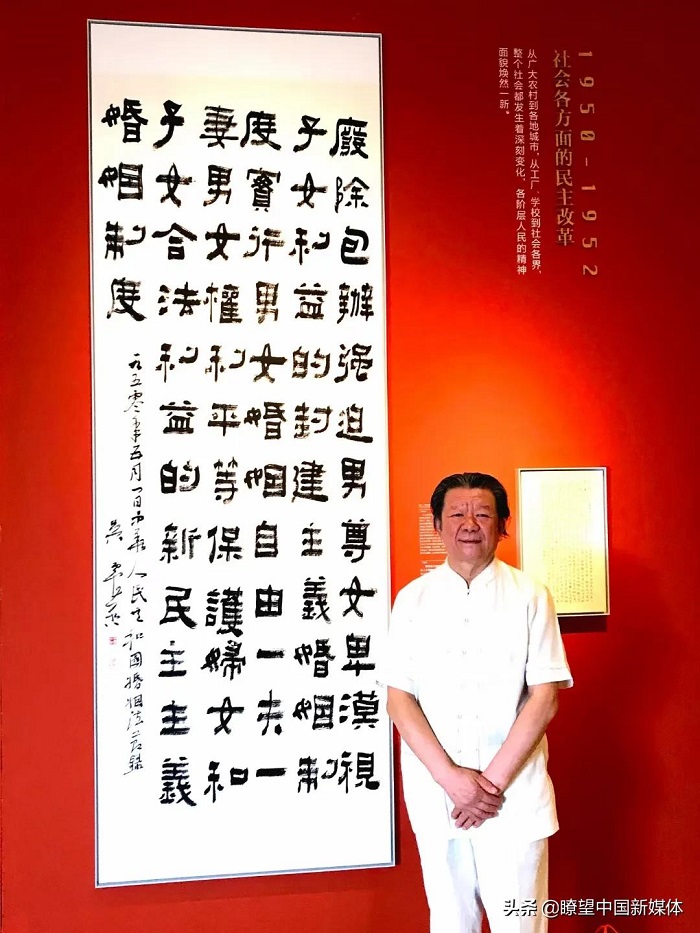 1950-1952
社会各方面的民主改革
从广大农村到各地城市，从工厂、学校到社会各界，
整个社会都发生着深刻变化，各阶层人民的精神
面貌焕然一新。
廢除包辦强迫男尊女卑漠視
子女利益的封建主義婚姻制
度實行男女婚姻自由一夫一
妻男女權利平等保護婦女和
子女合法利益的新民主主義
婚姻制度
一九五零年五月一日中華人民共和國婚姻法節錄
吴
头条 @瞭望中国新媒体